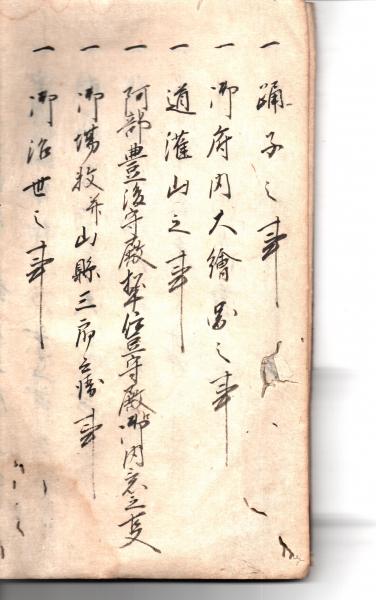 一 踊子之事
一 御府内大繪図之事
一 道灌山之事
一 阿部豊後守殿松平伊豆守殿御内意之事
一 御場牧并山縣三郎兵衛事
一 御治世之事